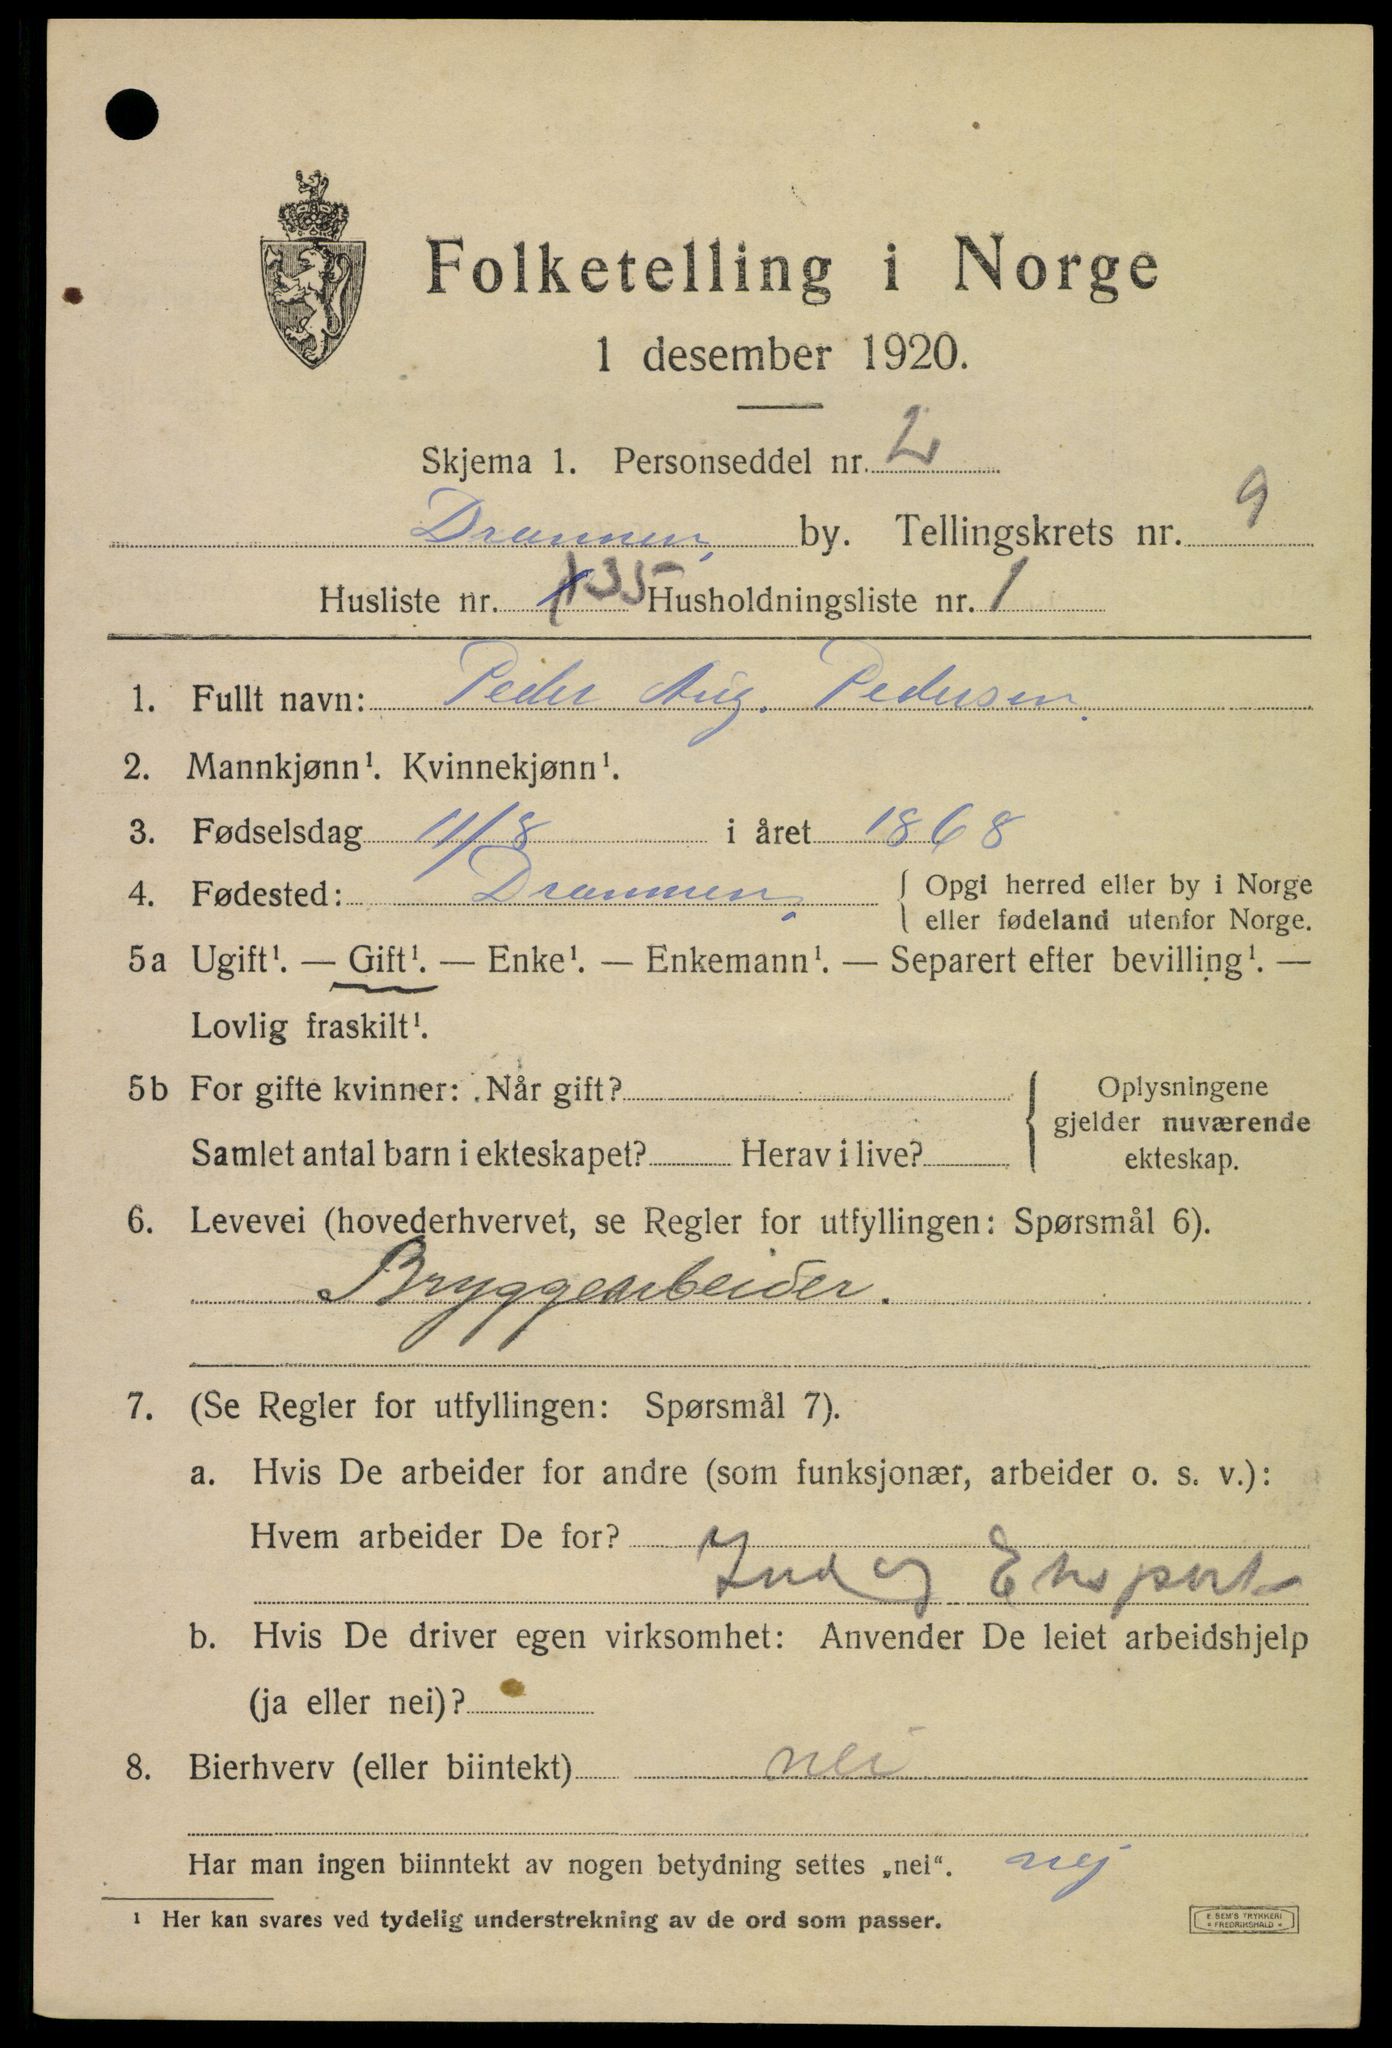 Folketelling i Norge
1 desember 1920.
Skjema 1. Personseddel nr. 2
Drammen, by. Tellingskrets nr. 9
Husliste nr. 135 Husholdningsliste nr. 1
1. Fullt navn: Peder Aug. Pedersen.
2. Mannkjønn¹. Kvinnekjønn¹.
3. Fødselsdag 11/8 i året 1868
4. Fødested: Drammen, { Opgi herred eller by i Norge
eller fødeland utenfor Norge.
5a Ugift¹. — Gift¹. — Enke¹. — Enkemann¹. — Separert efter bevilling¹. —
Lovlig fraskilt¹.
5b For gifte kvinner: Når gift? { Oplysningene
gjelder nuværende
Samlet antal barn i ekteskapet? Herav i live? ekteskap.
6. Levevei (hovederhvervet, se Regler for utfyllingen: Spørsmål 6).
Bryggearbeider.
7. (Se Regler for utfyllingen: Spørsmål 7).
a. Hvis De arbeider for andre (som funksjonær, arbeider o. s. v.):
Hvem arbeider De for?
Ind og Eksport
b. Hvis De driver egen virksomhet: Anvender De leiet arbeidshjelp
(ja eller nei)?
8. Bierhverv (eller biintekt) nei
Har man ingen biinntekt av nogen betydning settes „nei“. nej
¹ Her kan svares ved tydelig understrekning av de ord som passer.
E. SEM'S TRYKKERI
FREDRIKSHALD